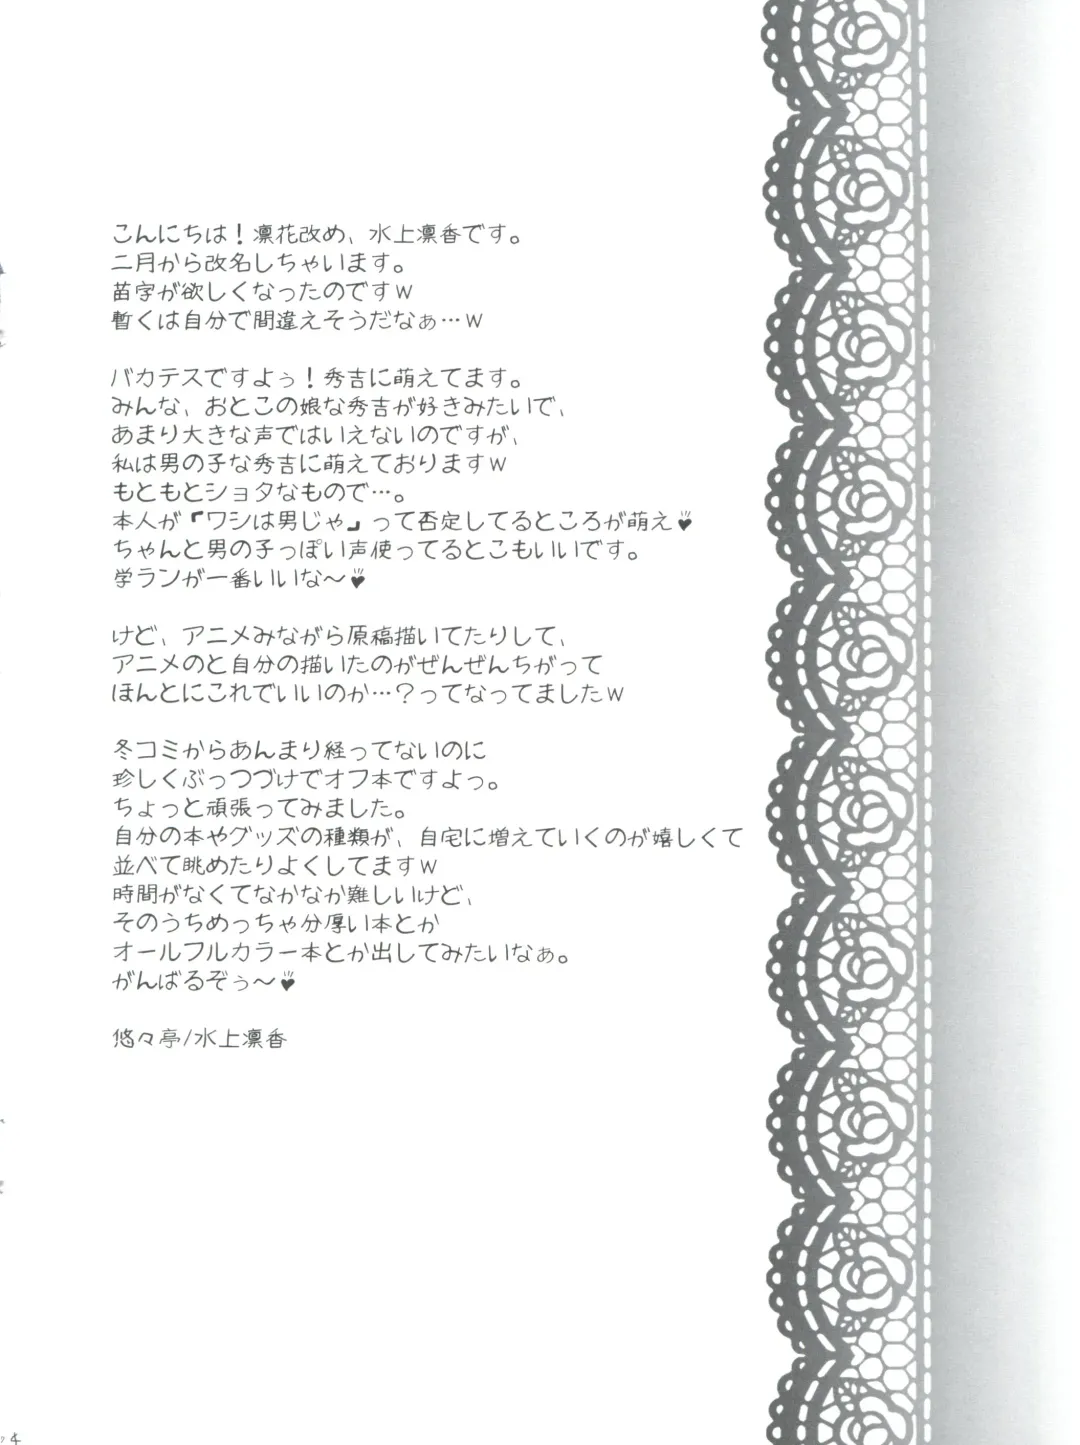 こんにちは！凛花改め、水上凛香です。
二月から改名しちゃいます。
苗字が欲しくなったのですｗ
暫くは自分で間違えそうだなぁ…ｗ
バカテスですよぅ！秀吉に萌えてます。
みんな、おとこの娘な秀吉が好きみたいで、
あまり大きな声ではいえないのですが、
私は男の子な秀吉に萌えておりますｗ
もともとショタなもので…。
本人が『ワシは男じゃ』って否定してるところが萌え♥
ちゃんと男の子っぽい声使ってるとこもいいです。
学ランが一番いいな～♥
けど、アニメみながら原稿描いてたりして、
アニメのと自分の描いたのがぜんぜんちがって
ほんとにこれでいいのか…？ってなってましたｗ
冬コミからあんまり経ってないのに
珍しくぶっつづけでオフ本ですよっ。
ちょっと頑張ってみました。
自分の本やグッズの種類が、自宅に増えていくのが嬉しくて
並べて眺めたりよくしてますｗ
時間がなくてなかなか難しいけど、
そのうちめっちゃ分厚い本とか
オールフルカラー本とか出してみたいなぁ。
がんばるぞぅ～♥
悠々亭/水上凛香